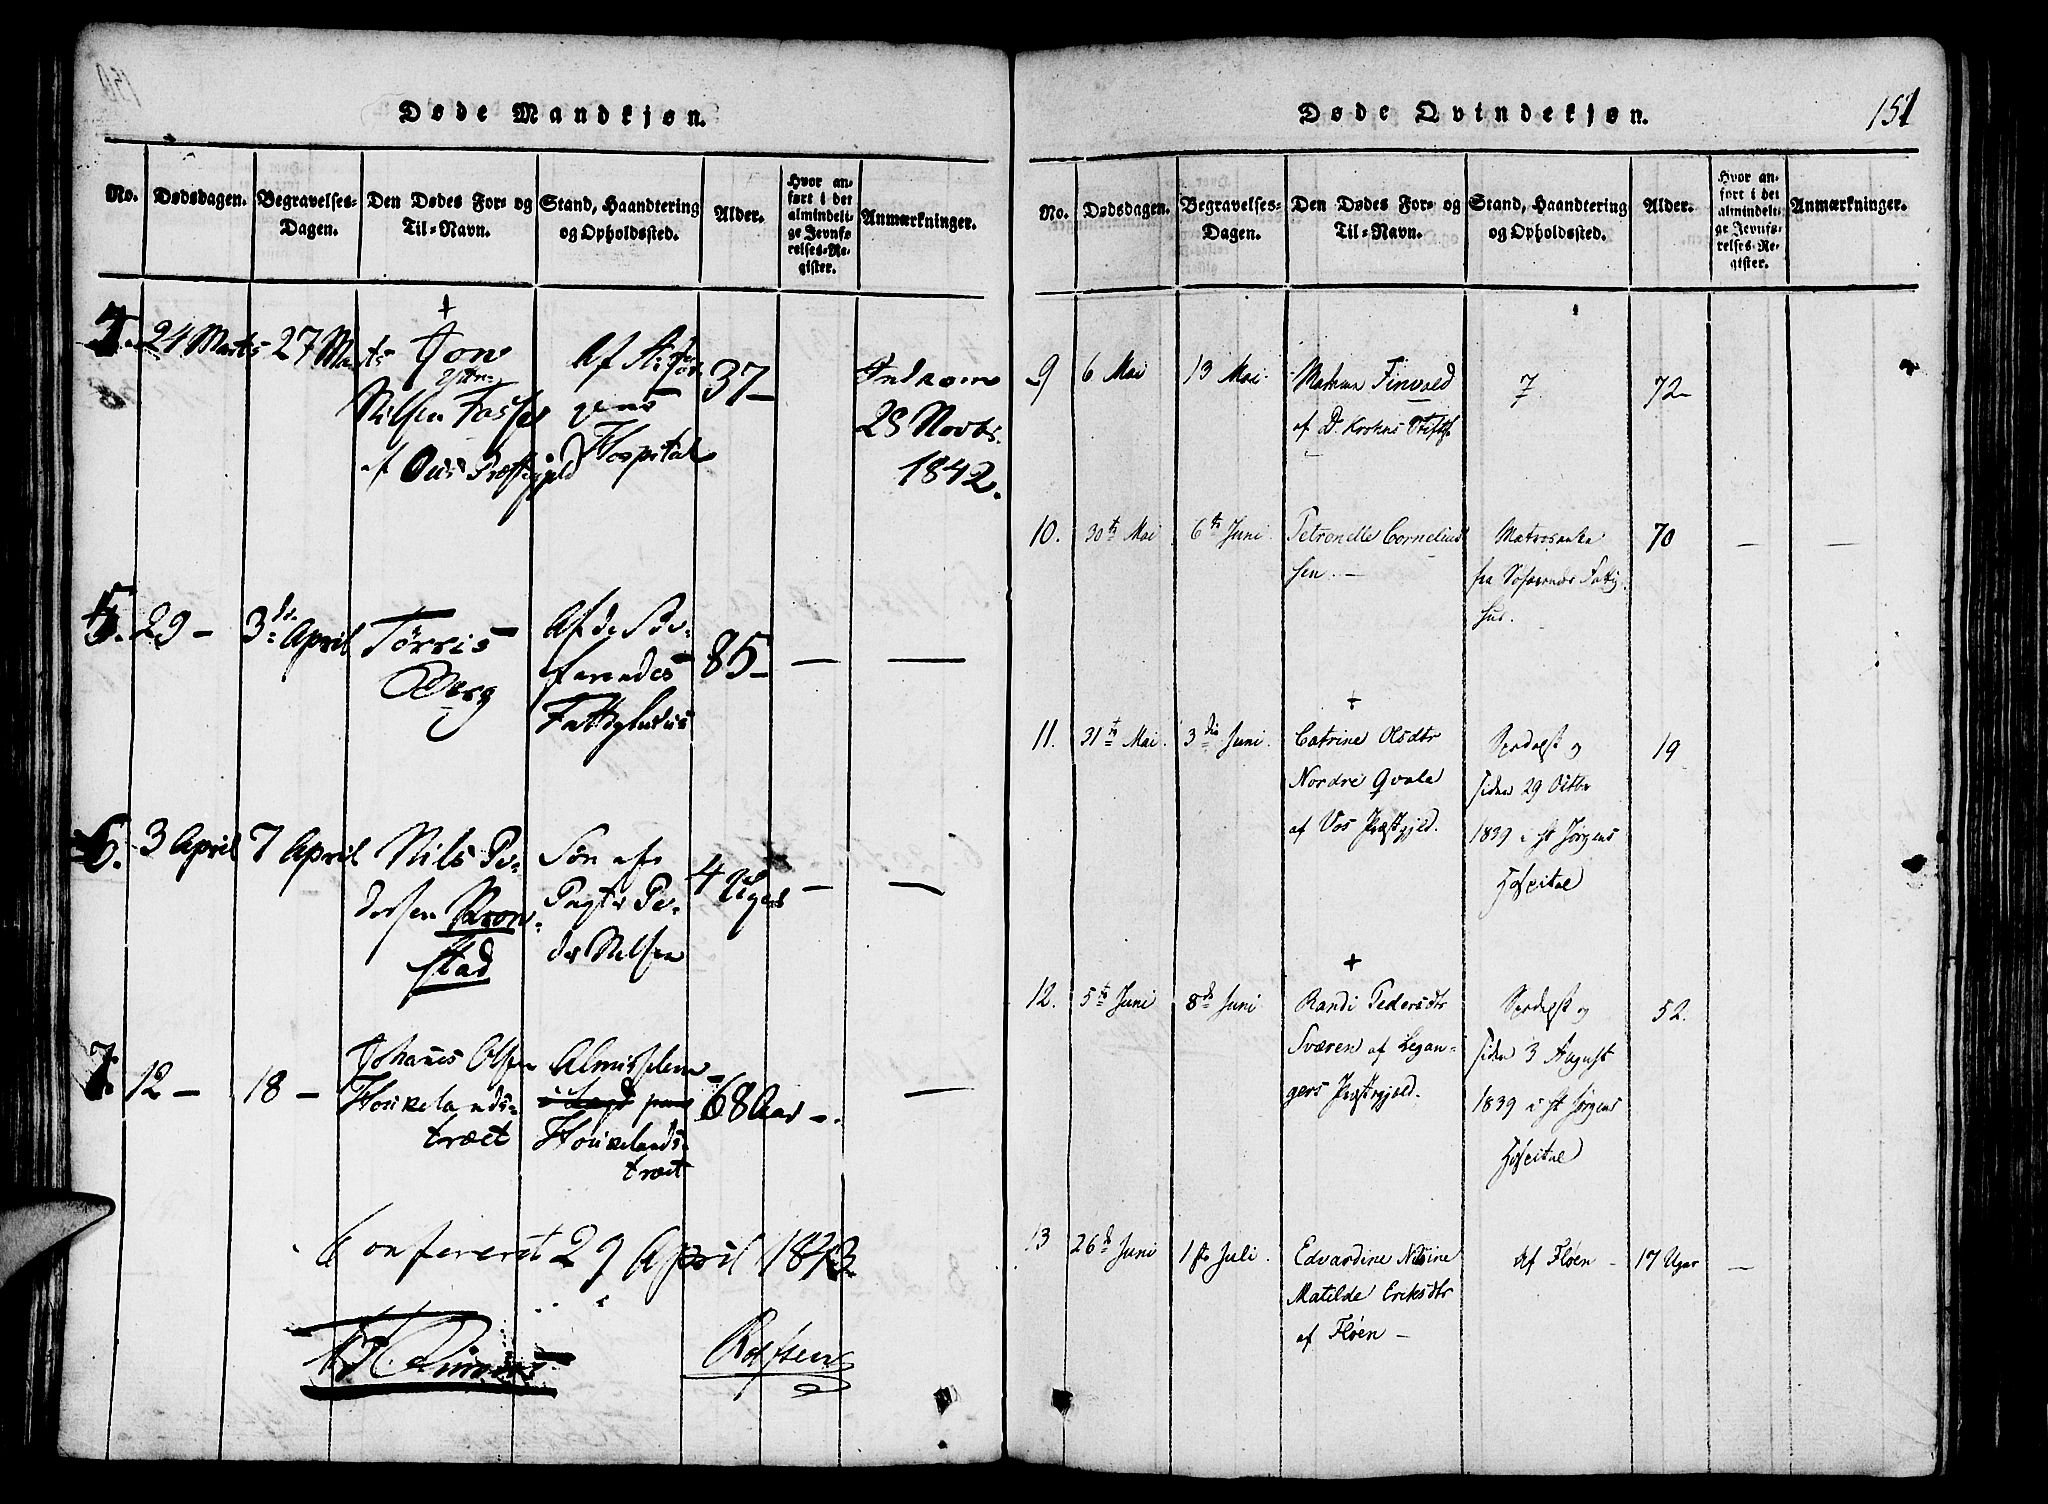 150
Døde Mandkjøn.
No. Dødsdagen. Begravelses-Dagen. Den Dødes For- og Til-Navn. Stand, Haandtering og Opholdssted. Alder. Hvor anført i det almindelige Jevnførelses-Register. Anmærkninger.
24 Marts 27 Marts Jon
Nilsen
af Præstegjeld
Af St. Jør-
gens
Hospital
37-
Indkom
28 Novbr.
1842.
5. 29 - 3die April Tørris
Berg
Af de Sø-
farendes
Fattighuus
85 - — —
6. 3 April 7 April Nils Pe-
dersen Kron-
stad
Søn af
Pagter Pe-
der Nilsen
4 Uger — —
7. 12 - 18 - Johanes Olsen
Houkelands-
træet
Almisselem
Houkelands-
træet
68 Aar -. —
Confereret 29 April 1843.
Rolfsen
Døde Qvindekjøn.
151
No. Dødsdagen. Begravelses-Dagen. Den Dødes For- og Til-Navn. Stand, Haandtering og Opholdssted. Alder. Hvor anført i det almindelige Jevnførelses-Register. Anmærkninger.
9 6 Mai 13 Mai. Finvold
af D. Krohns Stift.
72-
10. 30te Mai 6te Juni. Petronelle Cornelius
sen. —
Matrosenke
fra Søfarendes Fattig-
hus.
70 — —
11. 31te Mai. 3die Juni. Catrine Olsdtr
Nordre Qvale
af Vos Præstgjeld.
Spedalsk og
siden 29 Octbr
1839 i St Jørgens
Hospital
19
12. 5te Juni 8de Juni Randi Pedersdtr
Sværen af Legan-
gers Præstegjeld.
Spedalsk og
siden 3 August
1839 i St Jørgens
Hospital
52.
13 26de Juni 1ste Juli. Edvardine
Matilde Eriksdtr
af Fløen —
Af Fløen - 17 Uger —